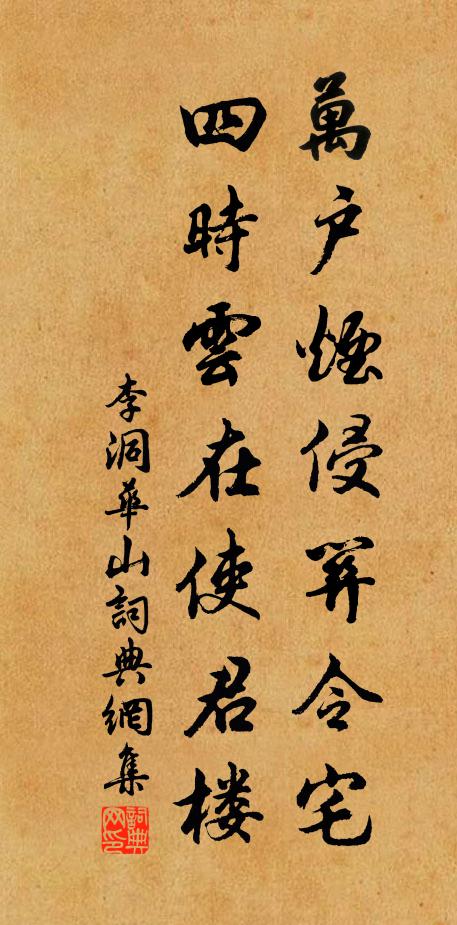 萬户煙侵關令宅
四時雲在使君樓
李洞華山詞典網集
詞典网印